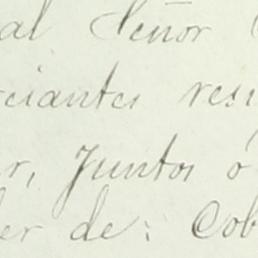 al Señor
ciantes resi
r, Juntos ó
er de: Cob